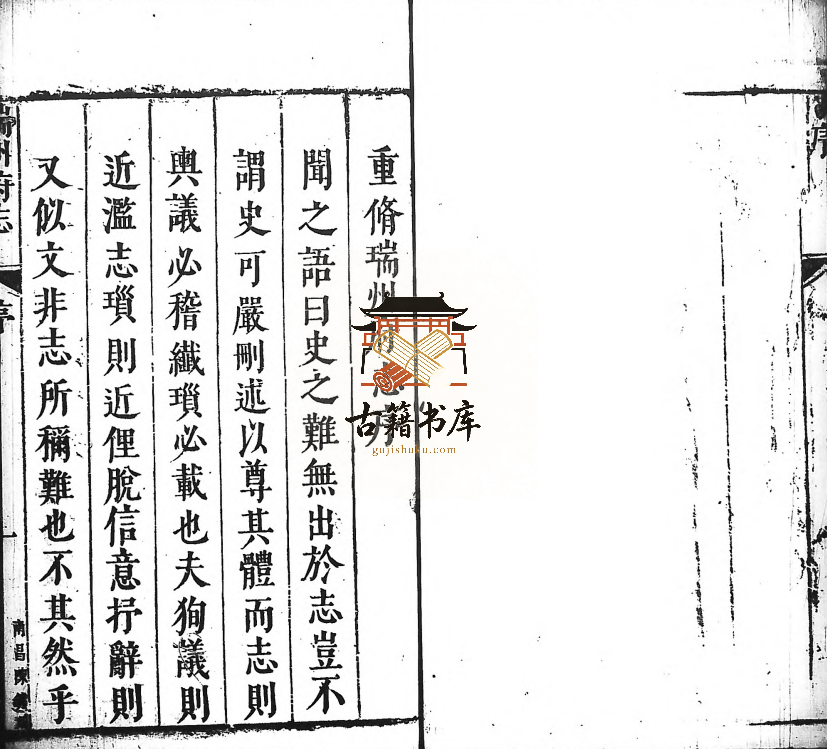 重脩瑞州府志序
聞之語曰史之難無出於志豈不
謂史可嚴刪述以尊其體而志則
輿議必稽纎瑣必載也夫狥議則
近濫志瑣則近俚脫信意抒辭則
又似文非志所稱難也不其然乎
瑞州府志
序
一
南昌陳
古籍书库
gujishuku.com